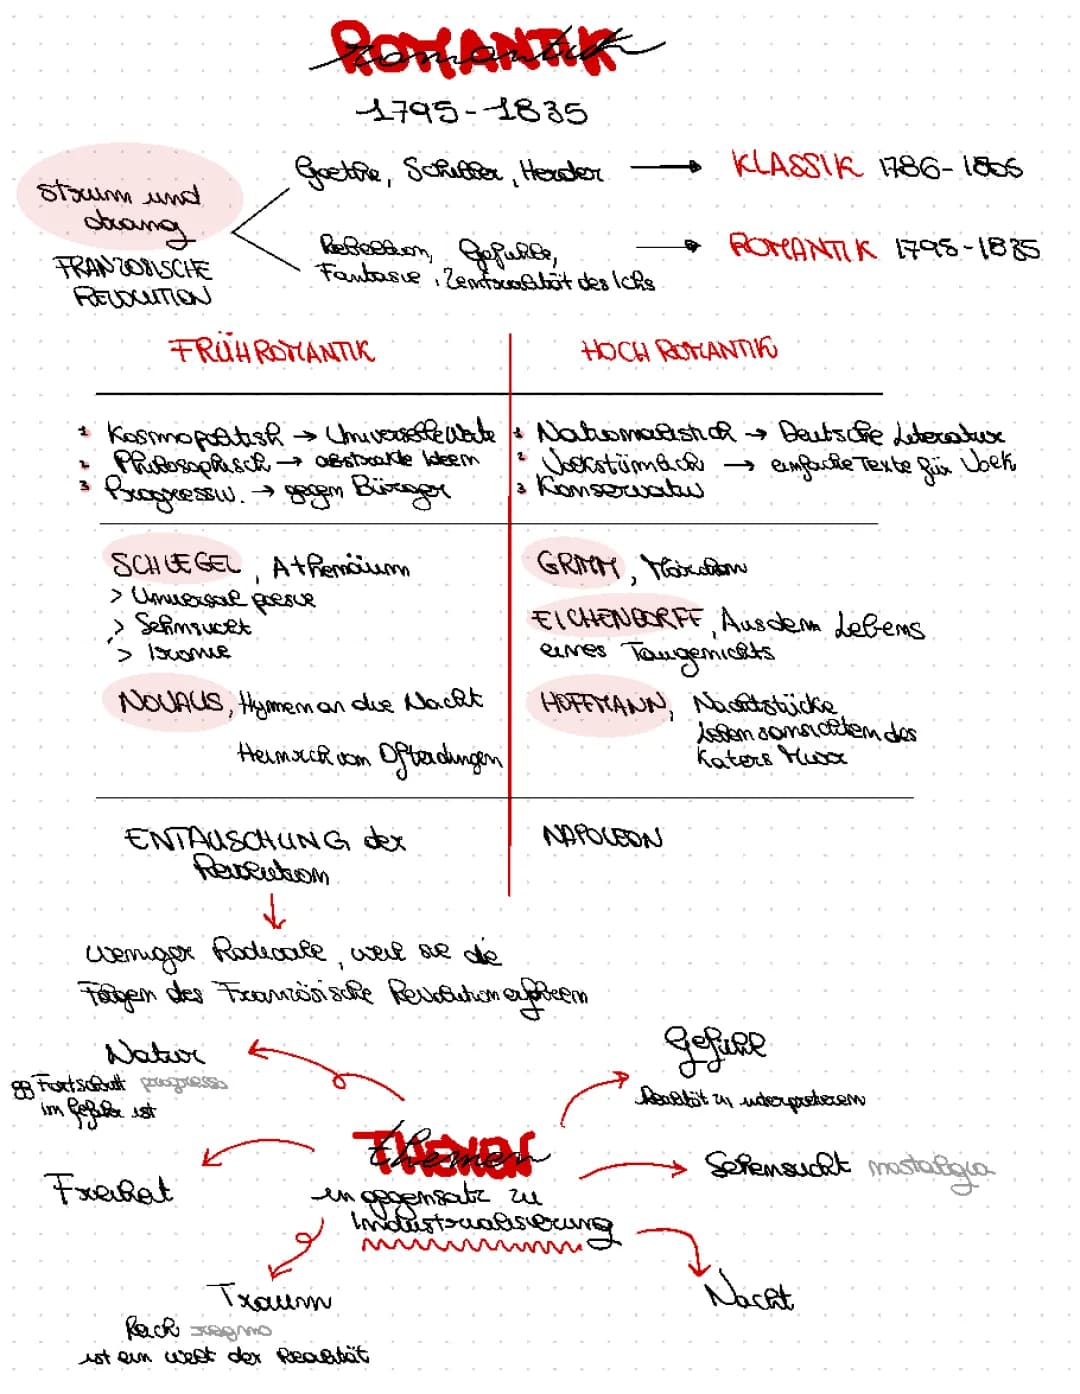 ROMANTIK
romantik
1795-1835
Sturm und drang
FRANZÖSISCHE REVOLUTION
Goethe, Schiller, Herder → KLASSIK 1786-1805
Rebellion, Gefühle,
Fantasie, Zentralität des Ichs → ROMANTIK 1795-1835
FRÜHROMANTIK
1 Kosmopolitish → Universelle Werte
2 Philosophisch → abstrakte Ideen
3 Progressiv. → gegen Bürger
HOCH ROMANTIK
1 Nationalistich → Deutsche Literatur
2 Volkstümlich → einfache Texte für Volk
3 Konservativ
SCHLEGEL, Athenäum
> Universal poesie
> Sehnsucht
> Ironie
NOVALIS, Hymen an die Nacht
Heinrich von Ofterdingen
GRIMM, Märchen
EICHENDORFF, Aus dem Lebens
eines Taugenichts
HOFFMANN, Nachtstücke
Lebensansichten des
Katers Murr
ENTAUSCHUNG der
Revolution
NAPOLEON
weniger Radicale, weil sie die
Folgen des Französische Revolution
Natur
Fortschritt progresso
im Gefahr ist
Gefühl
Realität zu interpretieren
Freiheit
THEMEN
themen
in gegensatz zu
Industrialisierung
Sehensucht nostalgia
Traum
Reich regno
ist ein welt der Realität
Nacht